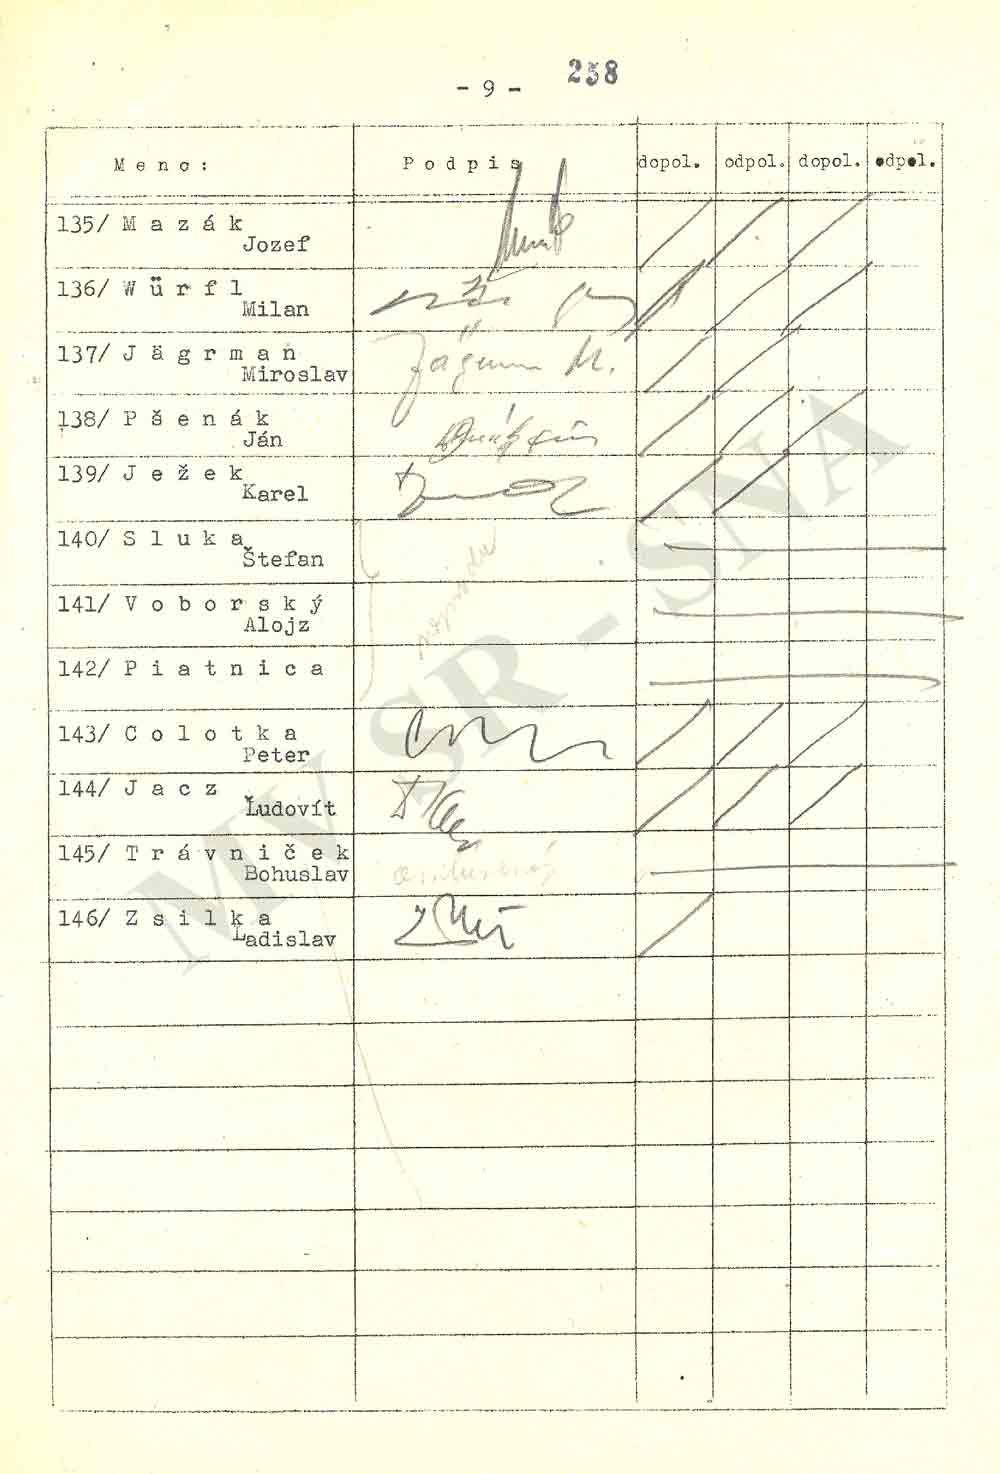 258
- 9 -
Meno: Podpis dopol. odpol. dopol. odpol.
135/ Mazák
Jozef
136/ Würfl
Milan
137/ Jägrman
Miroslav
Jägrman M.
138/ Pšenák
Ján
139/ Ježek
Karel
140/ Sluka
Štefan
141/ Voborský
Alojz
142/ Piatnica
143/ Colotka
Peter
144/ Jacz
Ľudovít
145/ Trávniček
Bohuslav
146/ Zsilka
Ladislav
MV SR - SNA